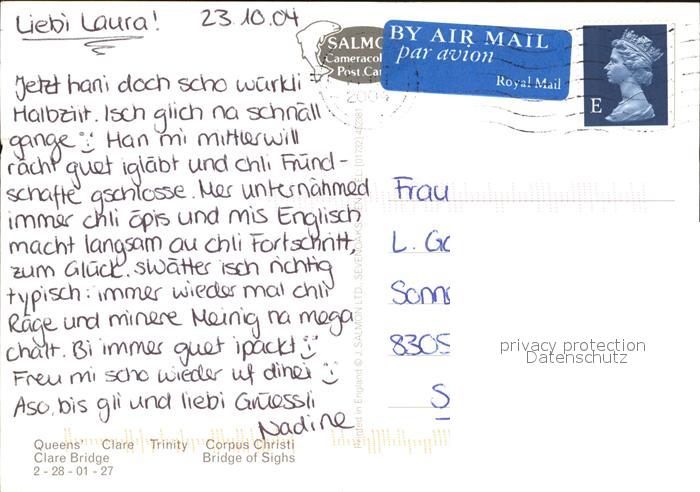 Liebi Laura! 23.10.04
Jetzt hani doch scho würkli
Halbziit. Isch glich na schnäll
gange Han mi mittlerwill
rächt guet igläbt und chli Fründ-
schafte gschlosse. Mer unternähmed
immer chli öpis und mis Englisch
macht langsam au chli Fortschritt,
zum Glück. Swätter isch richtig
typisch: immer wieder mal chli
Räge und minere Meinig na mega
chalt. Bi immer guet ipackt
Freu mi scho wieder uf dihei
Aso, bis gli und liebi Grüessli
Nadine
Queens' Clare Trinity Corpus Christi
Clare Bridge Bridge of Sighs
2 - 28 - 01 - 27
Printed in England © J. SALMON LTD. SEVENOAKS
SALMO
Cameracol
Post Car
2004
BY AIR MAIL
par avion
Royal Mail
E
Frau
L. Go
Sonn
8305
S
privacy protection
Datenschutz